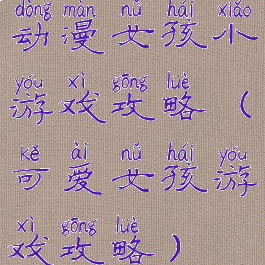 dòng màn nǚ hái xiǎo
动漫女孩小
yóu xì gōng luè
游戏攻略（
kě ài nǚ hái yóu
可爱女孩游
xì gōng luè
戏攻略）